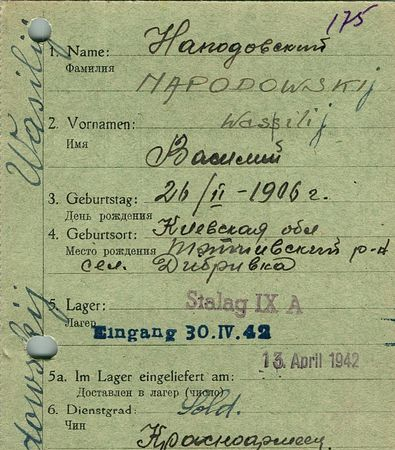 175
1. Name: Наподовский
Фамилия
NAPODOWSKIJ
2. Vornamen: Wassilij
Имя
Василий
3. Geburtstag: 26/II-1906 г.
День рождения
4. Geburtsort: Киевская обл
Место рождения Тэтиевский р-н
сел. Дибривка
5. Lager: Stalag IX A
Лагер
Eingang 30.IV.42
13. April 1942
5a. Im Lager eingeliefert am:
Доставлен в лагер (число)
6. Dienstgrad: Sold.
Чин
Красноармеец
Wasilij
dowskij